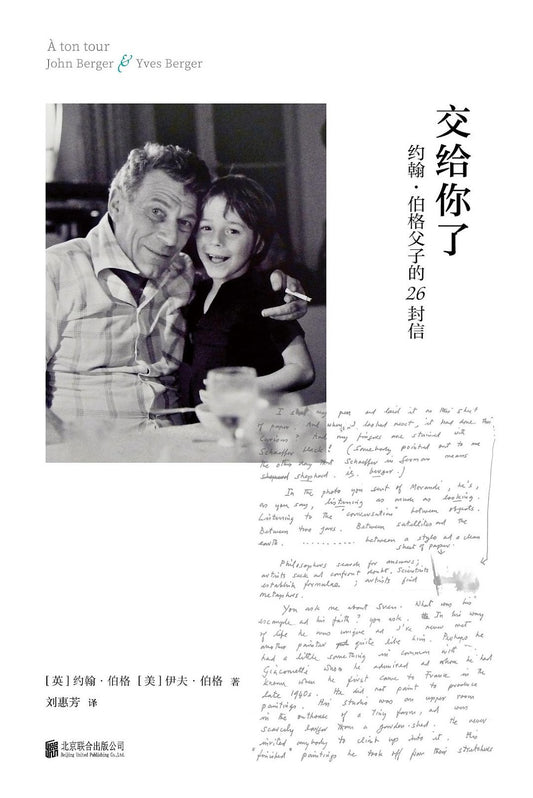 À ton tour
John Berger & Yves Berger
交给你了
约翰·伯格父子的26封信
I shut my pen and laid it on this sheet
of paper. And when I looked next, it had done this.
Curious? And my fingers are stained with
Schaeffer black! (Somebody pointed out to me
the other day that Schaeffer in German means
shepherd. ie. berger.)
In the photo you sent of Morandi, he's,
as you say, listening as much as looking.
Listening to the "conversation" between objects.
Between two jars. Between satellites and the
earth. .......... between a stylo and a clean
sheet of paper.
Philosophers search for answers;
artists seek and confront doubt. Scientists
establish formulae; artists find
metaphors.
You ask me about Sven. What was his
example and his faith? you ask. In his way
of life he was unique and I've never met
another painter quite like him. Perhaps he
had a little something in common with
Giacometti whom he admired and whom he had
known when he first came to France in the
late 1940s. He did not paint to produce
paintings. His studio was an upper room
in the outhouse of a tiny farm, and was
scarcely larger than a garden-shed. He never
invited anybody to climb up into it. His
finished paintings he took off from their stretchers
[英]约翰·伯格 [美]伊夫·伯格 著
刘惠芳 译
北京联合出版公司
Beijing United Publishing Co.,Ltd.